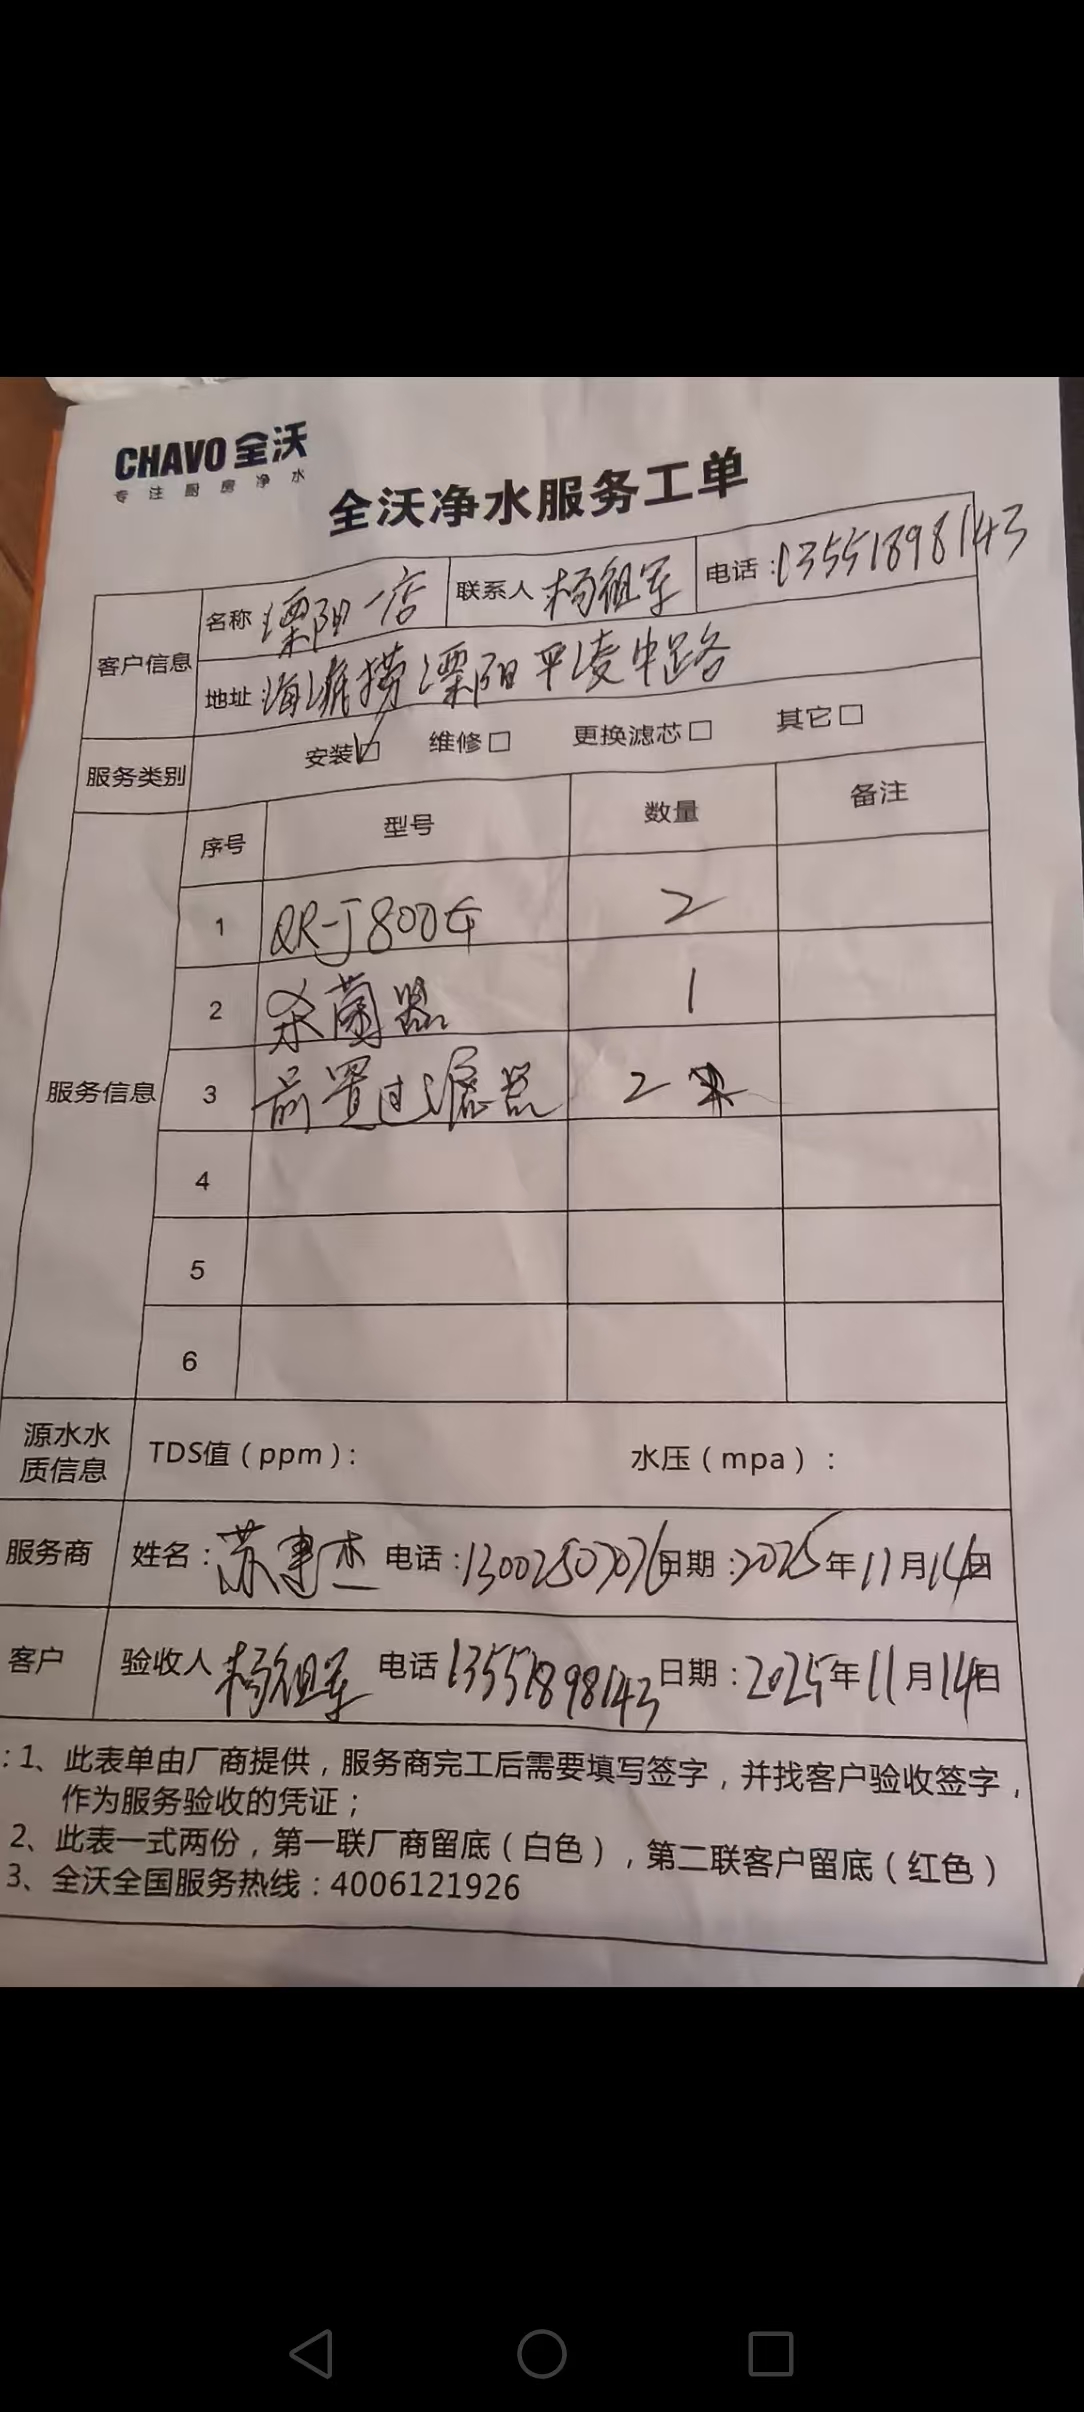 CHAVO 全沃
专注厨房净水
全沃净水服务工单
客户信息 名称 溧阳一店 联系人 杨祖军 电话:13551898143
地址 海底捞溧阳平陵中路
服务类别 安装☑ 维修□ 更换滤芯□ 其它□
服务信息 序号 型号 数量 备注
1 QR-J800G 2
2 杀菌器 1
3 前置过滤器 2
4
5
6
源水水质信息 TDS值(ppm): 水压(mpa):
服务商 姓名:苏建杰 电话:13002507076 日期:2025年11月14日
客户 验收人 杨祖军 电话 13551898143 日期:2025年11月14日
:1、此表单由厂商提供,服务商完工后需要填写签字,并找客户验收签字,
作为服务验收的凭证;
2、此表一式两份,第一联厂商留底(白色),第二联客户留底(红色)
3、全沃全国服务热线:4006121926